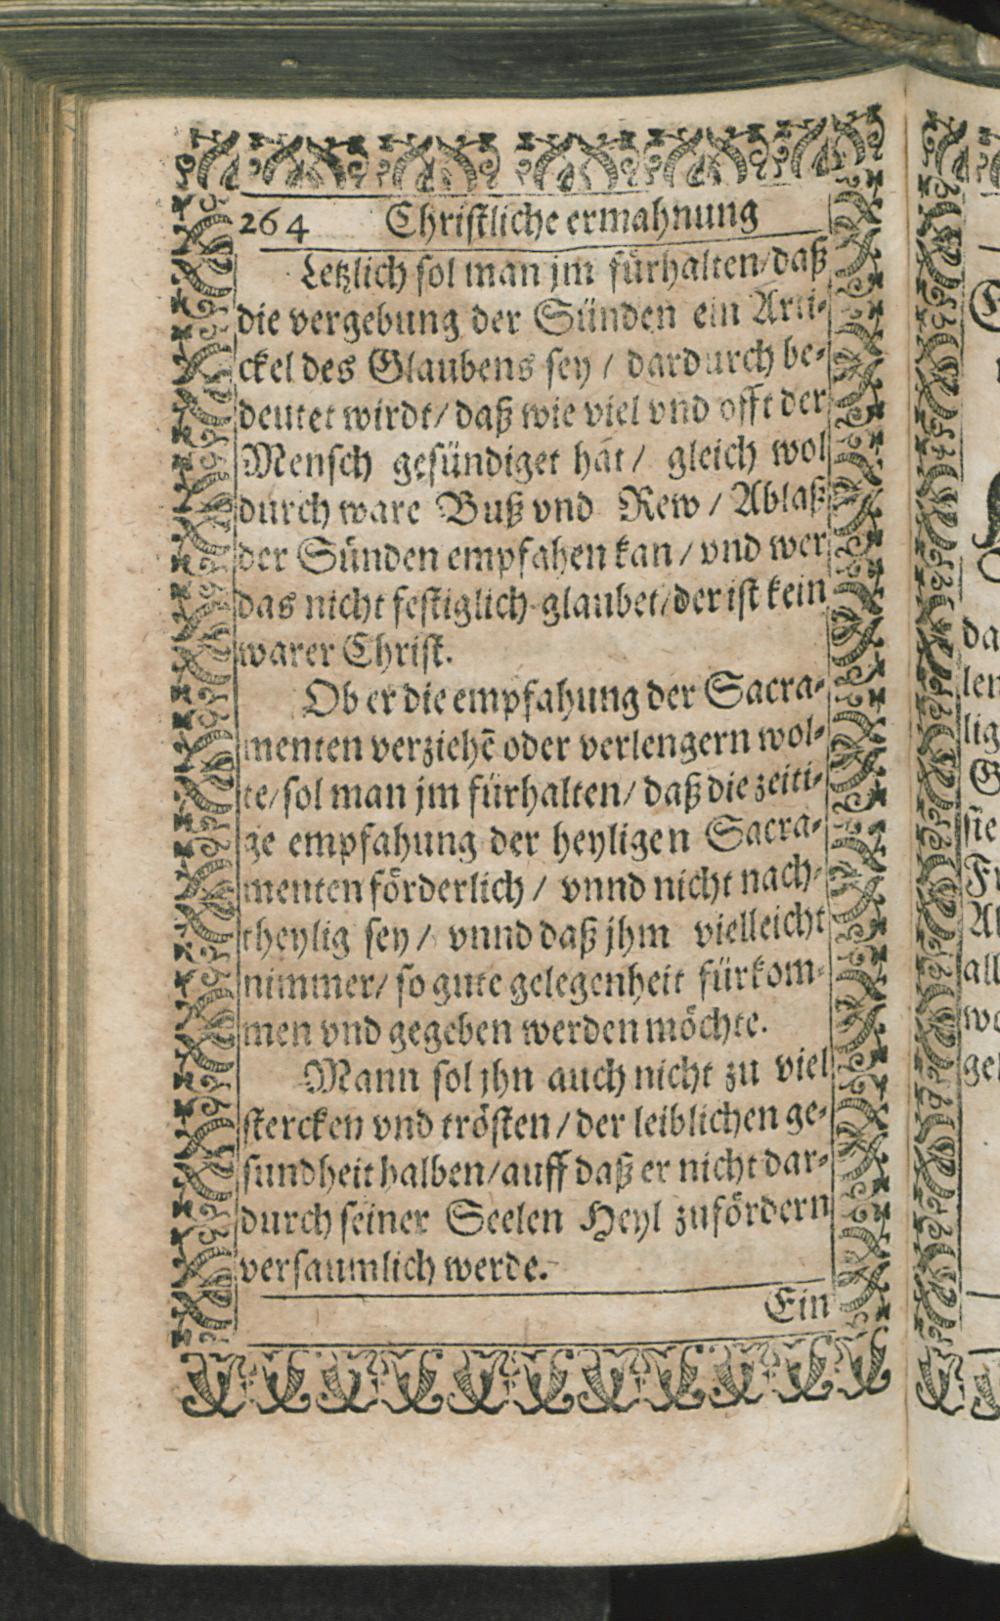 264 Christliche ermahnung
Letzlich sol man jm fürhalten/daß
die vergebung der Sünden ein Arti-
ckel des Glaubens sey / dardurch be-
deutet wirdt/ daß wie viel vnd offt der
Mensch gesündiget hat / gleich wol
durch ware Buß vnd Rew / Ablaß
der Sünden empfahen kan / vnd wer
das nicht festiglich glaubet/der ist kein
warer Christ.
Ob er die empfahung der Sacra-
menten verziehē oder verlengern wol-
te/sol man jm fürhalten/ daß die zeiti-
ge empfahung der heyligen Sacra-
menten förderlich / vnnd nicht nach-
theylig sey / vnnd daß jhm vielleicht
nimmer/ so gute gelegenheit fürkom-
men vnd gegeben werden möchte.
Mann sol jhn auch nicht zu viel
stercken vnd trösten / der leiblichen ge-
sundheit halben/auff daß er nicht dar-
durch seiner Seelen Heyl zufördern
versaumlich werde.
Ein
da
len
lig
sie
Fr
all
we
ge